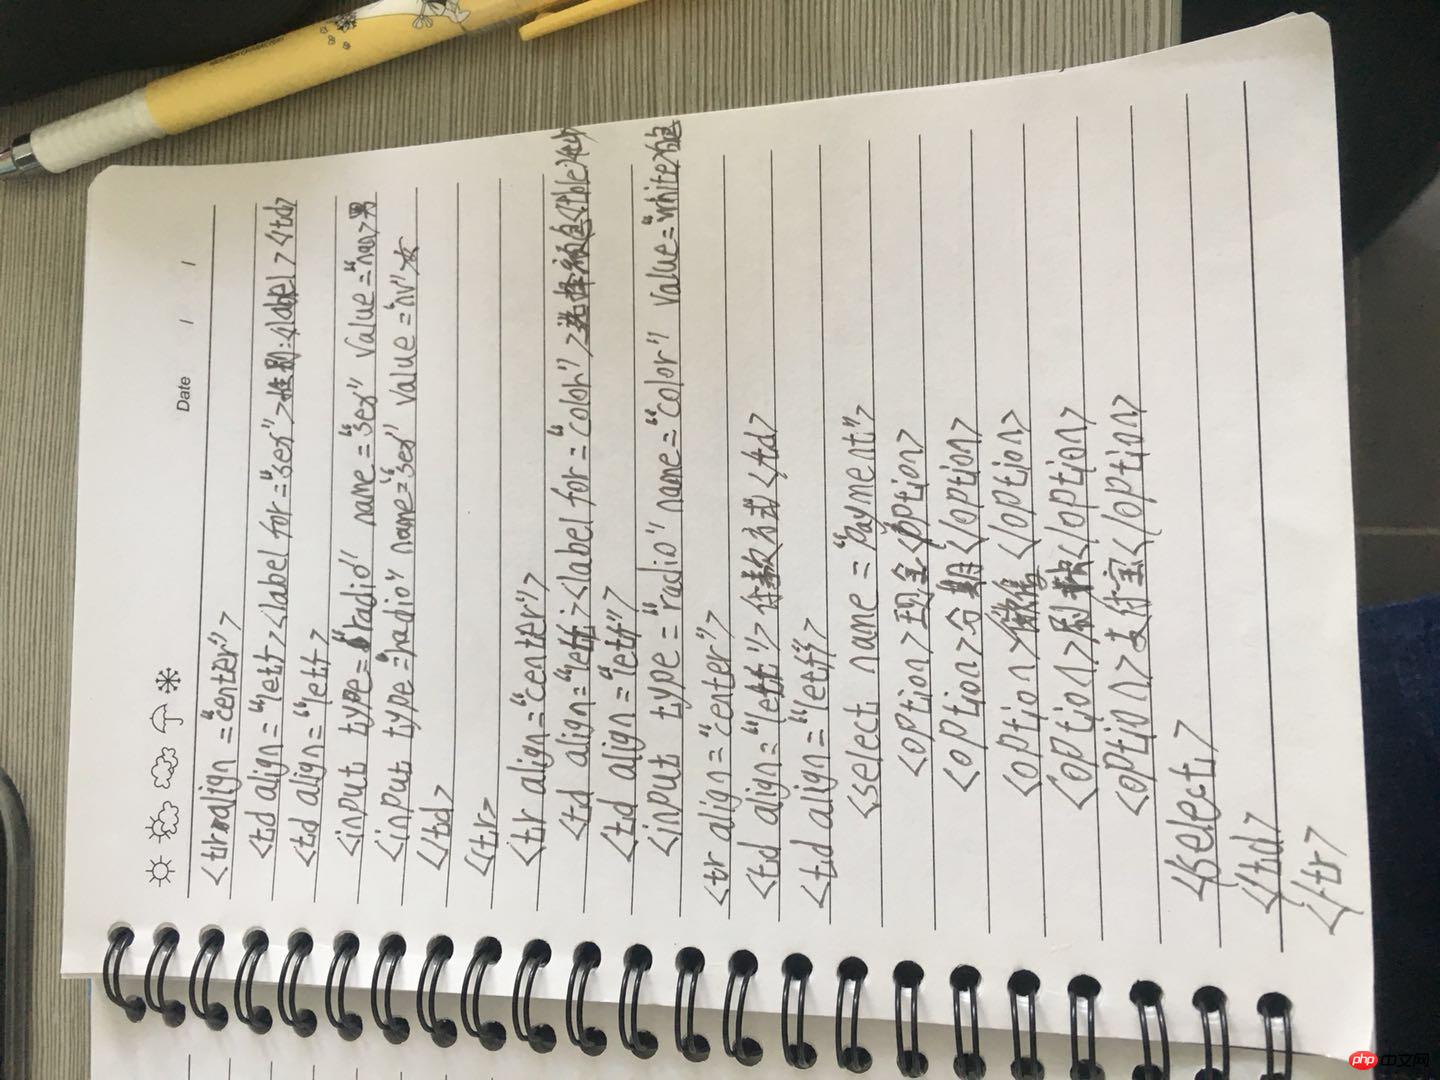 Date / /
<tr align="center">
<td align="left><label for="sex">性别:</label></td>
<td align="left>
<input type="radio" name="sex" value="nan>男
<input type="radio" name="sex" value="nv"女
</td>
</tr>
<tr align="center">
<td align="left><label for="color">选择颜色</td>
<td align="left">
<input type="radio" name="color" value="white>白色
<tr align="center">
<td align="left">付款方式</td>
<td align="left">
<select name="payment">
<option>现金</option>
<option>分期</option>
<option>微信</option>
<option>刷款</option>
<option>支付宝</option>
<select>
</td>
</tr>
php 中文网